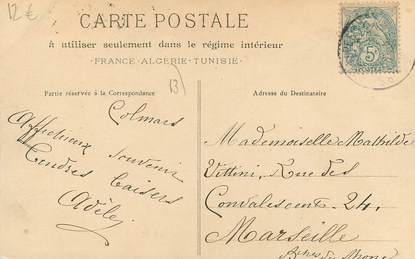 12€
CARTE POSTALE
à utiliser seulement dans le régime intérieur
FRANCE - ALGÉRIE - TUNISIE
13)
Partie réservée à la Correspondance
Adresse du Destinataire
Colmars
Affectueux souvenir
Tendres baisers
Adèle
Mademoiselle Mathilde
Vittini, Rue des
Convalescents 24,
Marseille
Bches du Rhone
5c